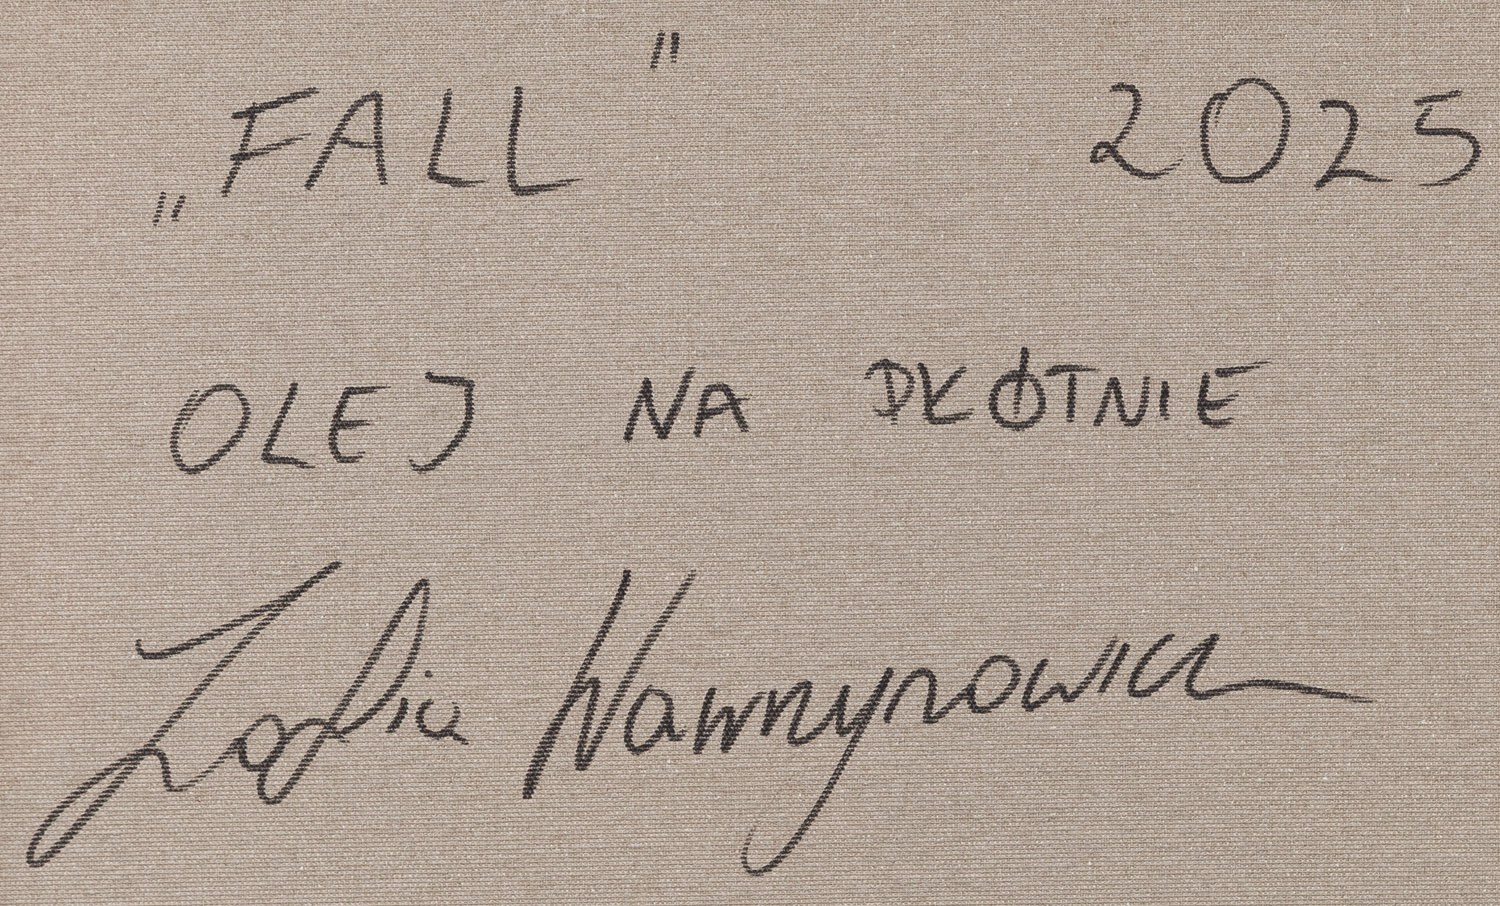 „FALL” 2025
OLEJ NA PŁÓTNIE
Zofia Wawrzynowicz